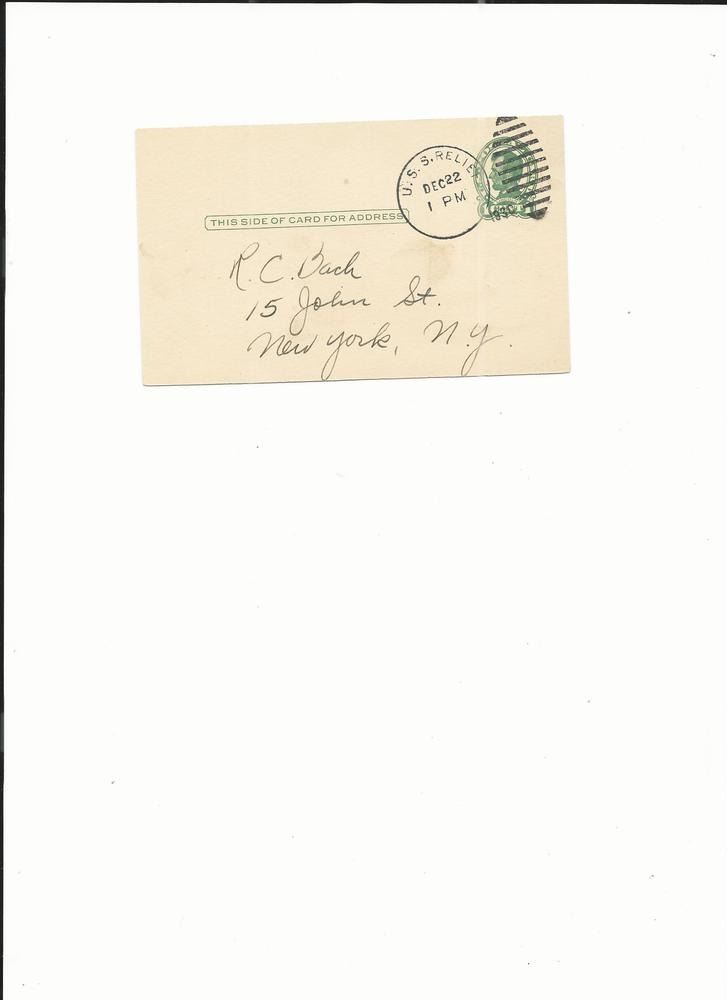 U.S.S. RELIEF
DEC 22
1 PM
1930
THIS SIDE OF CARD FOR ADDRESS
R. C. Bach
15 John St.
New York, N.Y.